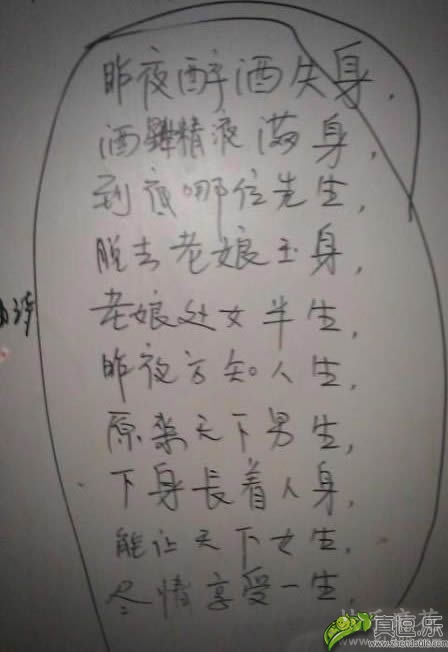 昨夜醉酒失身,
酒與精液满身,
到底哪位先生,
脱去老娘玉身,
老娘处女半生,
昨夜方知人生,
原来天下男生,
下身長着人身,
能让天下女生,
尽情享受一生,
真逗乐
www.zhendoule.com